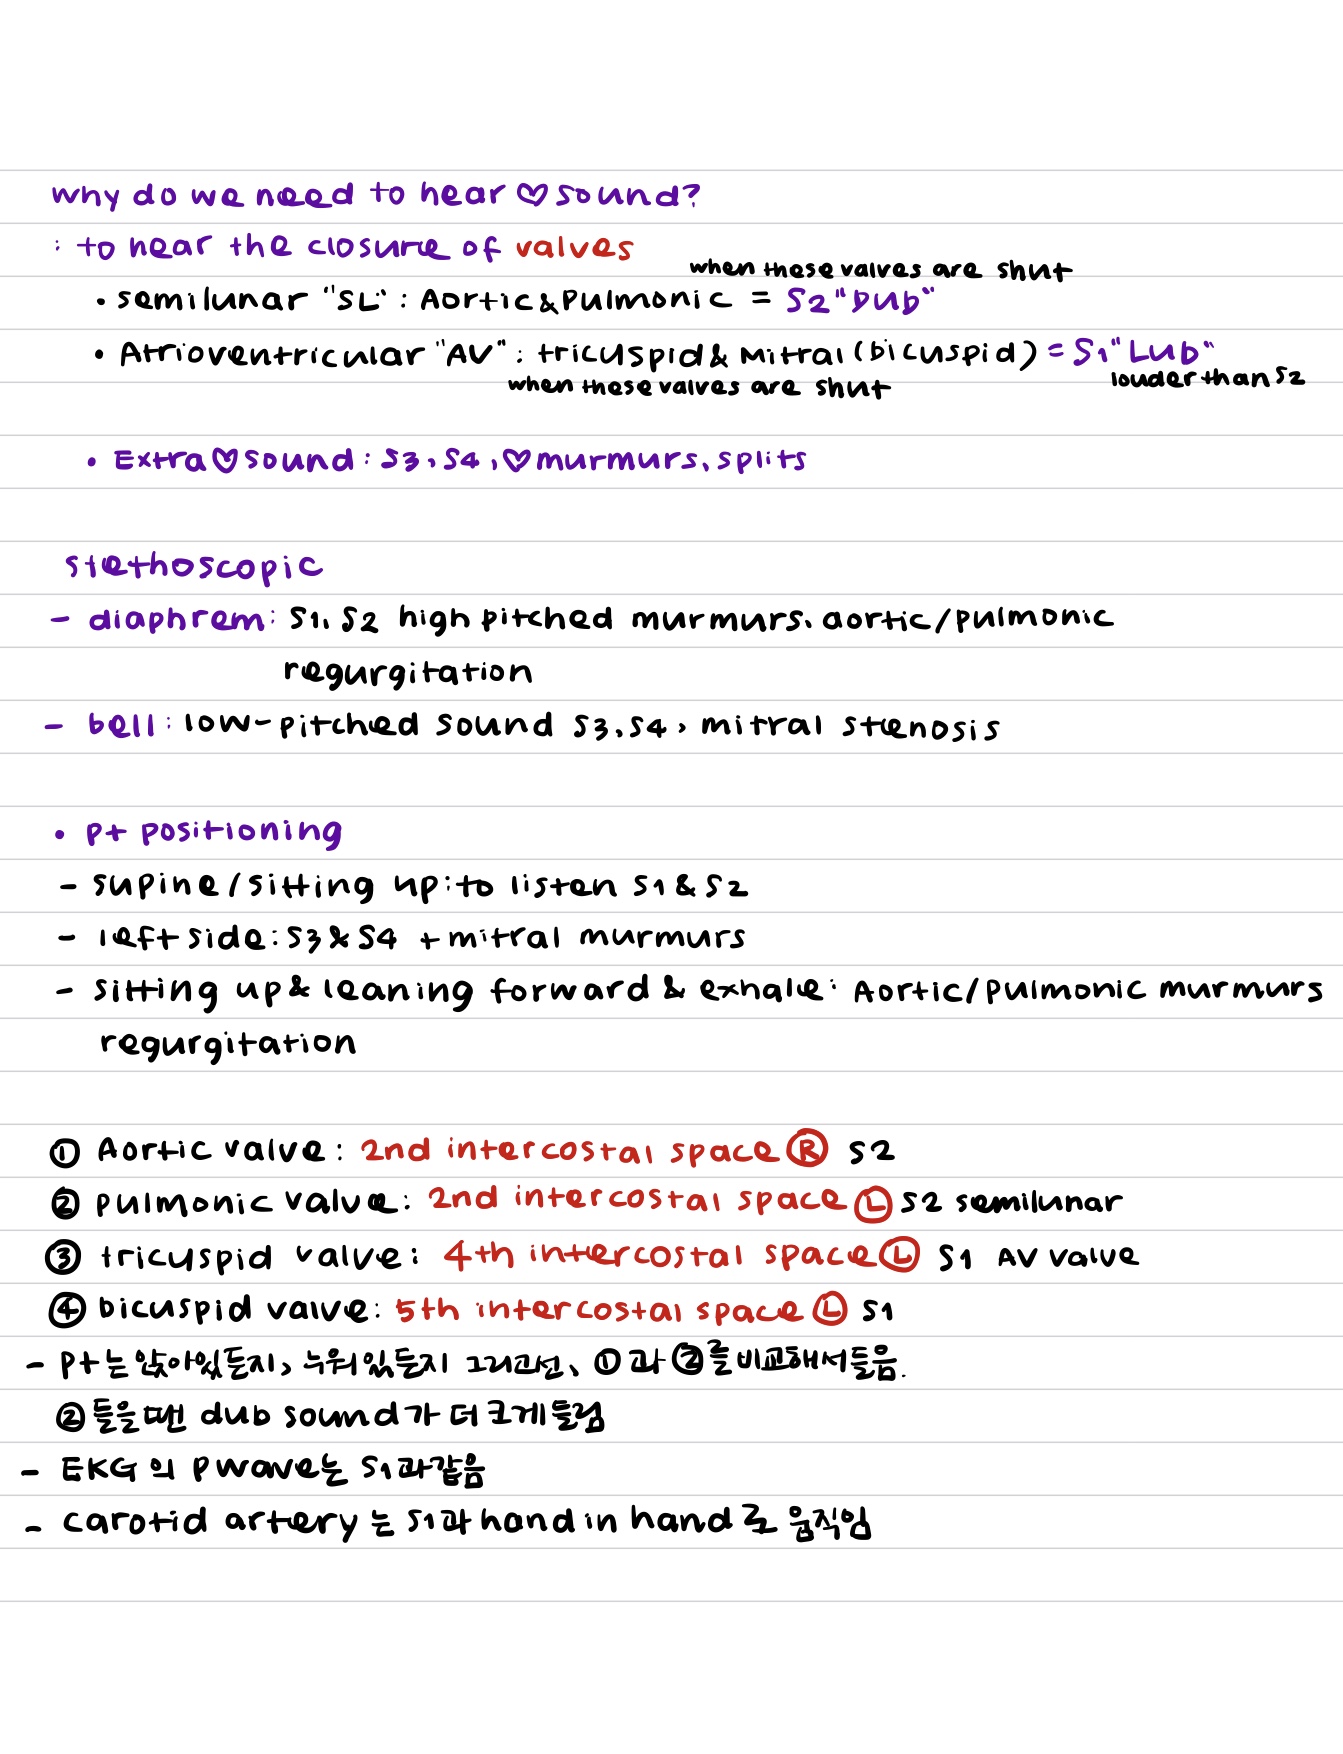 why do we need to hear ♡ sound?
: to hear the closure of valves
when these valves are shut
• semilunar "SL" : Aortic & Pulmonic = S2 "Dub"
• Atrioventricular "AV" : tricuspid & Mitral (bicuspid) = S1 "Lub"
when these valves are shut
louder than S2
• Extra ♡ sound : S3, S4, ♡ murmurs, splits
stethoscopic
- diaphrem: S1, S2 high pitched murmurs, aortic/pulmonic
regurgitation
- bell: low-pitched sound S3, S4, mitral stenosis
• pt positioning
- supine/sitting up: to listen S1 & S2
- left side: S3 & S4 + mitral murmurs
- sitting up & leaning forward & exhale: Aortic/pulmonic murmurs
regurgitation
① Aortic valve: 2nd intercostal space Ⓡ S2
② pulmonic valve: 2nd intercostal space Ⓛ S2 semilunar
③ tricuspid valve: 4th intercostal space Ⓛ S1 AV valve
④ bicuspid valve: 5th intercostal space Ⓛ S1
- pt는 앉아있든지, 누워있든지 그리고선, ①과 ②를 비교해서들음.
② 들을땐 dub sound가 더 크게들림
- EKG의 P wave는 S1과같음
- carotid artery 는 S1과 hand in hand 로 움직임